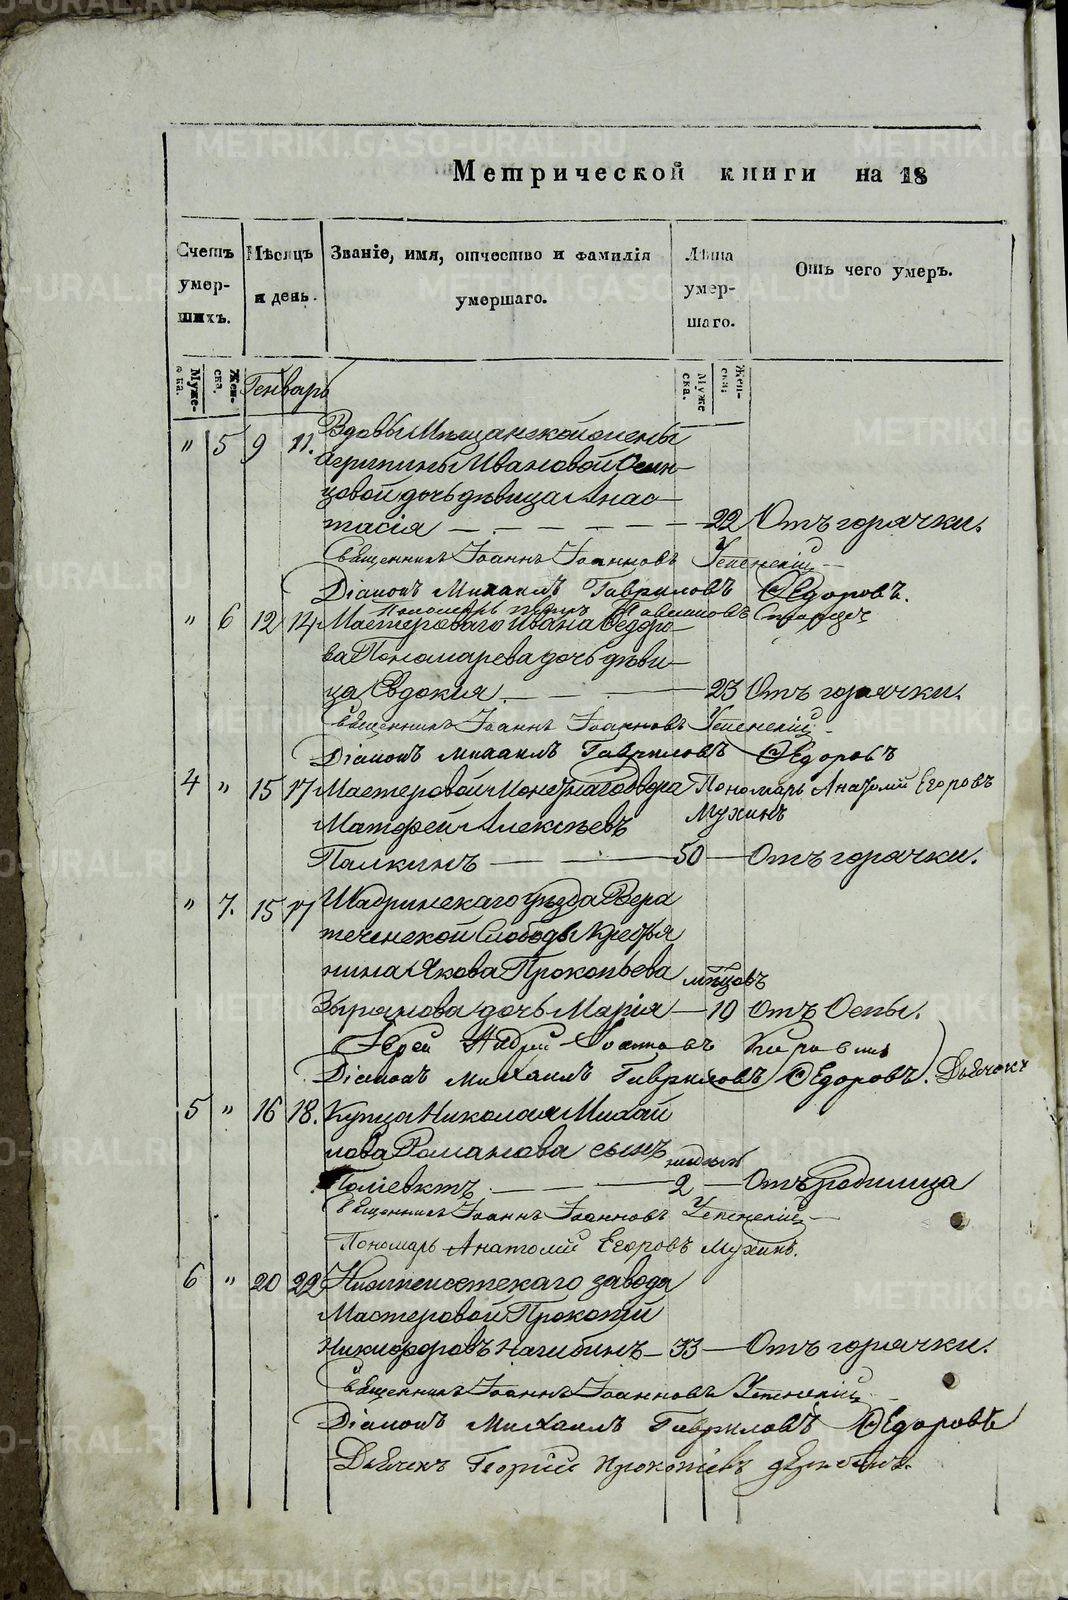 Метрической книги на 18
Счетъ умер-шихъ. Мѣсяцъ и день. Званіе, имя, отчество и фамилія умершаго. Лѣта умер-шаго. Отъ чего умеръ.
Муже-ска. Жен-ска. Генварь Муже-ска. Жен-ска.
" 5 9 11. Вдовы Мѣщанской жены
Агрипины Ивановой Осин-
цовой дочь дѣвица Анас-
тасія 22 Отъ горячки.
Священникъ Іоаннъ Іоанновъ Успенскій
Діаконъ Михаилъ Гавриловъ Ѳедоровъ.
Пономарь
" 6 12 14 Мастероваго Ивана Ѳедоро-
ва Пономарева дочь дѣви-
ца Евдокія 23 Отъ горячки.
Священникъ Іоаннъ Іоанновъ Успенскій
Діаконъ Михаилъ Гавриловъ Ѳедоровъ
4 " 15 17 Мастеровой Монетнаго двора Пономарь Анатолій Егоровъ
Мухинъ
Матфей Алексѣевъ
Палкинъ 50 Отъ горячки.
" 7. 15 17 Шадринскаго уѣзда
теченской Слободы Крестья
нина Якова Прокопьева мѣсцовъ
Зырянова дочь Марія 10 Отъ Оспы.
Іерей Андрей
Діаконъ Михаилъ Гавриловъ Ѳедоровъ. Дьячокъ
5 " 16 18. Купца Николая Михай
лова Романова сынъ
недѣль
Поліевктъ 2 Отъ родимца
Священникъ Іоаннъ Іоанновъ Успенскій
Пономарь Анатолій Егоровъ Мухинъ.
6 " 20 22 Нижнеисетскаго завода
Мастеровой Прокопій
Никифоровъ Нагибинъ 33 Отъ горячки.
Священникъ Іоаннъ Іоанновъ Успенскій
Діаконъ Михаилъ Гавриловъ Ѳедоровъ
Дьячекъ Георгій Прокопіевъ
METRIKI.GASO-URAL.RU